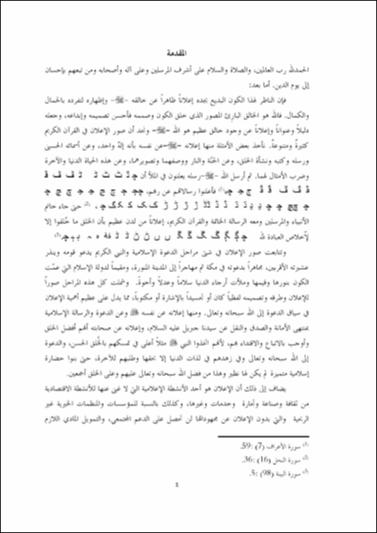 المقدمة
الحمدلله رب العالمين، والصلاة والسلام على أشرف المرسلين وعلى آله وأصحابه ومن تبعهم بإحسان
إلى يوم الدين. أما بعد:
فإن الناظر لهذا الكون البديع يجده إعلاناً ظاهراً عن خالقه -ﷻ- وإظهاره لتفرده بالجمال
والكمال. فالله هو الخالق البارئ المصور الذي خلق الكون وصممه فأحسن تصميمه وإبداعه، وجعله
دليلاً وعنواناً وإعلاناً عن وجود خالق عظيم هو الله -ﷻ- ونجد أن صور الإعلان في القرآن الكريم
كثيرة ومتنوعة. نأخذ بعض الأمثلة منها إعلانه -ﷻ- عن نفسه بأنه إله واحد، وعن أسمائه الحسنى
ورسله وكتبه ونشأة الخلق، وعن الجنة والنار ووصفهما وتصويرهما، وعن هذه الحياة الدنيا والآخرة
وضرب الأمثال لهما. ثم أرسل الله -ﷻ- رسله يعلنون في الملأ أن
فأعلنوا رسالاتهم عن ربهم،
(2) حتى جاء خاتم
الأنبياء والمرسلين ومعه الرسالة الخاتمة والقرآن الكريم، إعلاناً من لدن عظيم بأن الخلق ما خُلقوا إلا
لإخلاص العبادة لله
وتتابعت صور الإعلان في شتى مراحل الدعوة الإسلامية والنبي الكريم يدعو قومه وينذر
عشيرته الأقربين، مجاهراً بدعوته في مكة ثم مهاجراً إلى المدينة المنورة، ومقيماً لدولة الإسلام التي عمّت
الكون بنورها وقيمها وملأت أرجاء الدنيا سلاماً وعدلاً وأخوة. وشملت كل هذه المراحل صوراً
للإعلان وطرقه وتصميمه لفظياً كان أو تجسيداً بالإشارة أو مكتوباً، مما يدل على عظيم أهمية الإعلان
في سياق الدعوة إلى الله سبحانه وتعالى. ومنها إعلانه عن نفسه ﷺ وعن الدعوة والرسالة الإسلامية
بمنتهى الأمانة والصدق والنقل عن سيدنا جبريل عليه السلام، وإعلانه عن صحابته أنهم أفضل الخلق
وأوجب بالاتباع والاقتداء بهم، لأنهم اتخذوا النبي ﷺ مثلاً أعلى في تمسكهم بالخلق الحسن، والدعوة
إلى الله سبحانه وتعالى وفي زهدهم في لذات الدنيا إلا بحقها وطلبهم للآخرة، حتى بنوا حضارة
إسلامية متميزة لم يكن لها نظير وهذا من فضل الله سبحانه وتعالى عليهم وعلى الخلق أجمعين.
يضاف إلى ذلك أن الإعلان هو أحد الأنشطة الإعلامية التي لا غنى عنها للأنشطة الاقتصادية
من ثقافة وصناعة وتجارة وخدمات وغيرها، وكذلك بالنسبة للمؤسسات والمنظمات الخيرية غير
الربحية والتي بدون الإعلان عن مجهوداتها لن تحصل على الدعم المجتمعي، والتمويل المادي اللازم
(1) سورة الأعراف (7) :59.
(2) سورة النحل (16) :36.
(3) سورة البينة (98) :5.
1